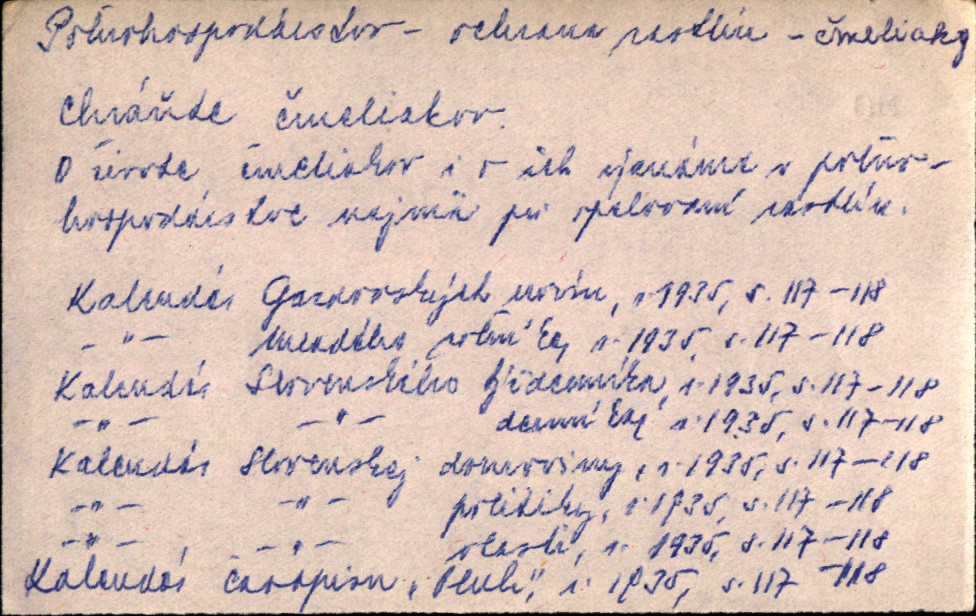 Poľnohospodárstvo - ochrana rastlín - čmeliaky
Chráňte čmeliakov.
O živote čmeliakov i o ich význame v poľno-
hospodárstve najmä pri opeľovaní rastlín.
Kalendár Gazdovských novín, r. 1935, s. 117-118
-"- mladého roľníka, r. 1935, s. 117-118
Kalendár Slovenského týždenníka, r. 1935, s. 117-118
-"- -"- denníka, r. 1935, s. 117-118
Kalendár Slovenskej domoviny, r. 1935, s. 117-118
-"- -"- politiky, r. 1935, s. 117-118
-"- -"- vlasti, r. 1935, s. 117-118
Kalendár časopisu „Pluh", r. 1935, s. 117-118